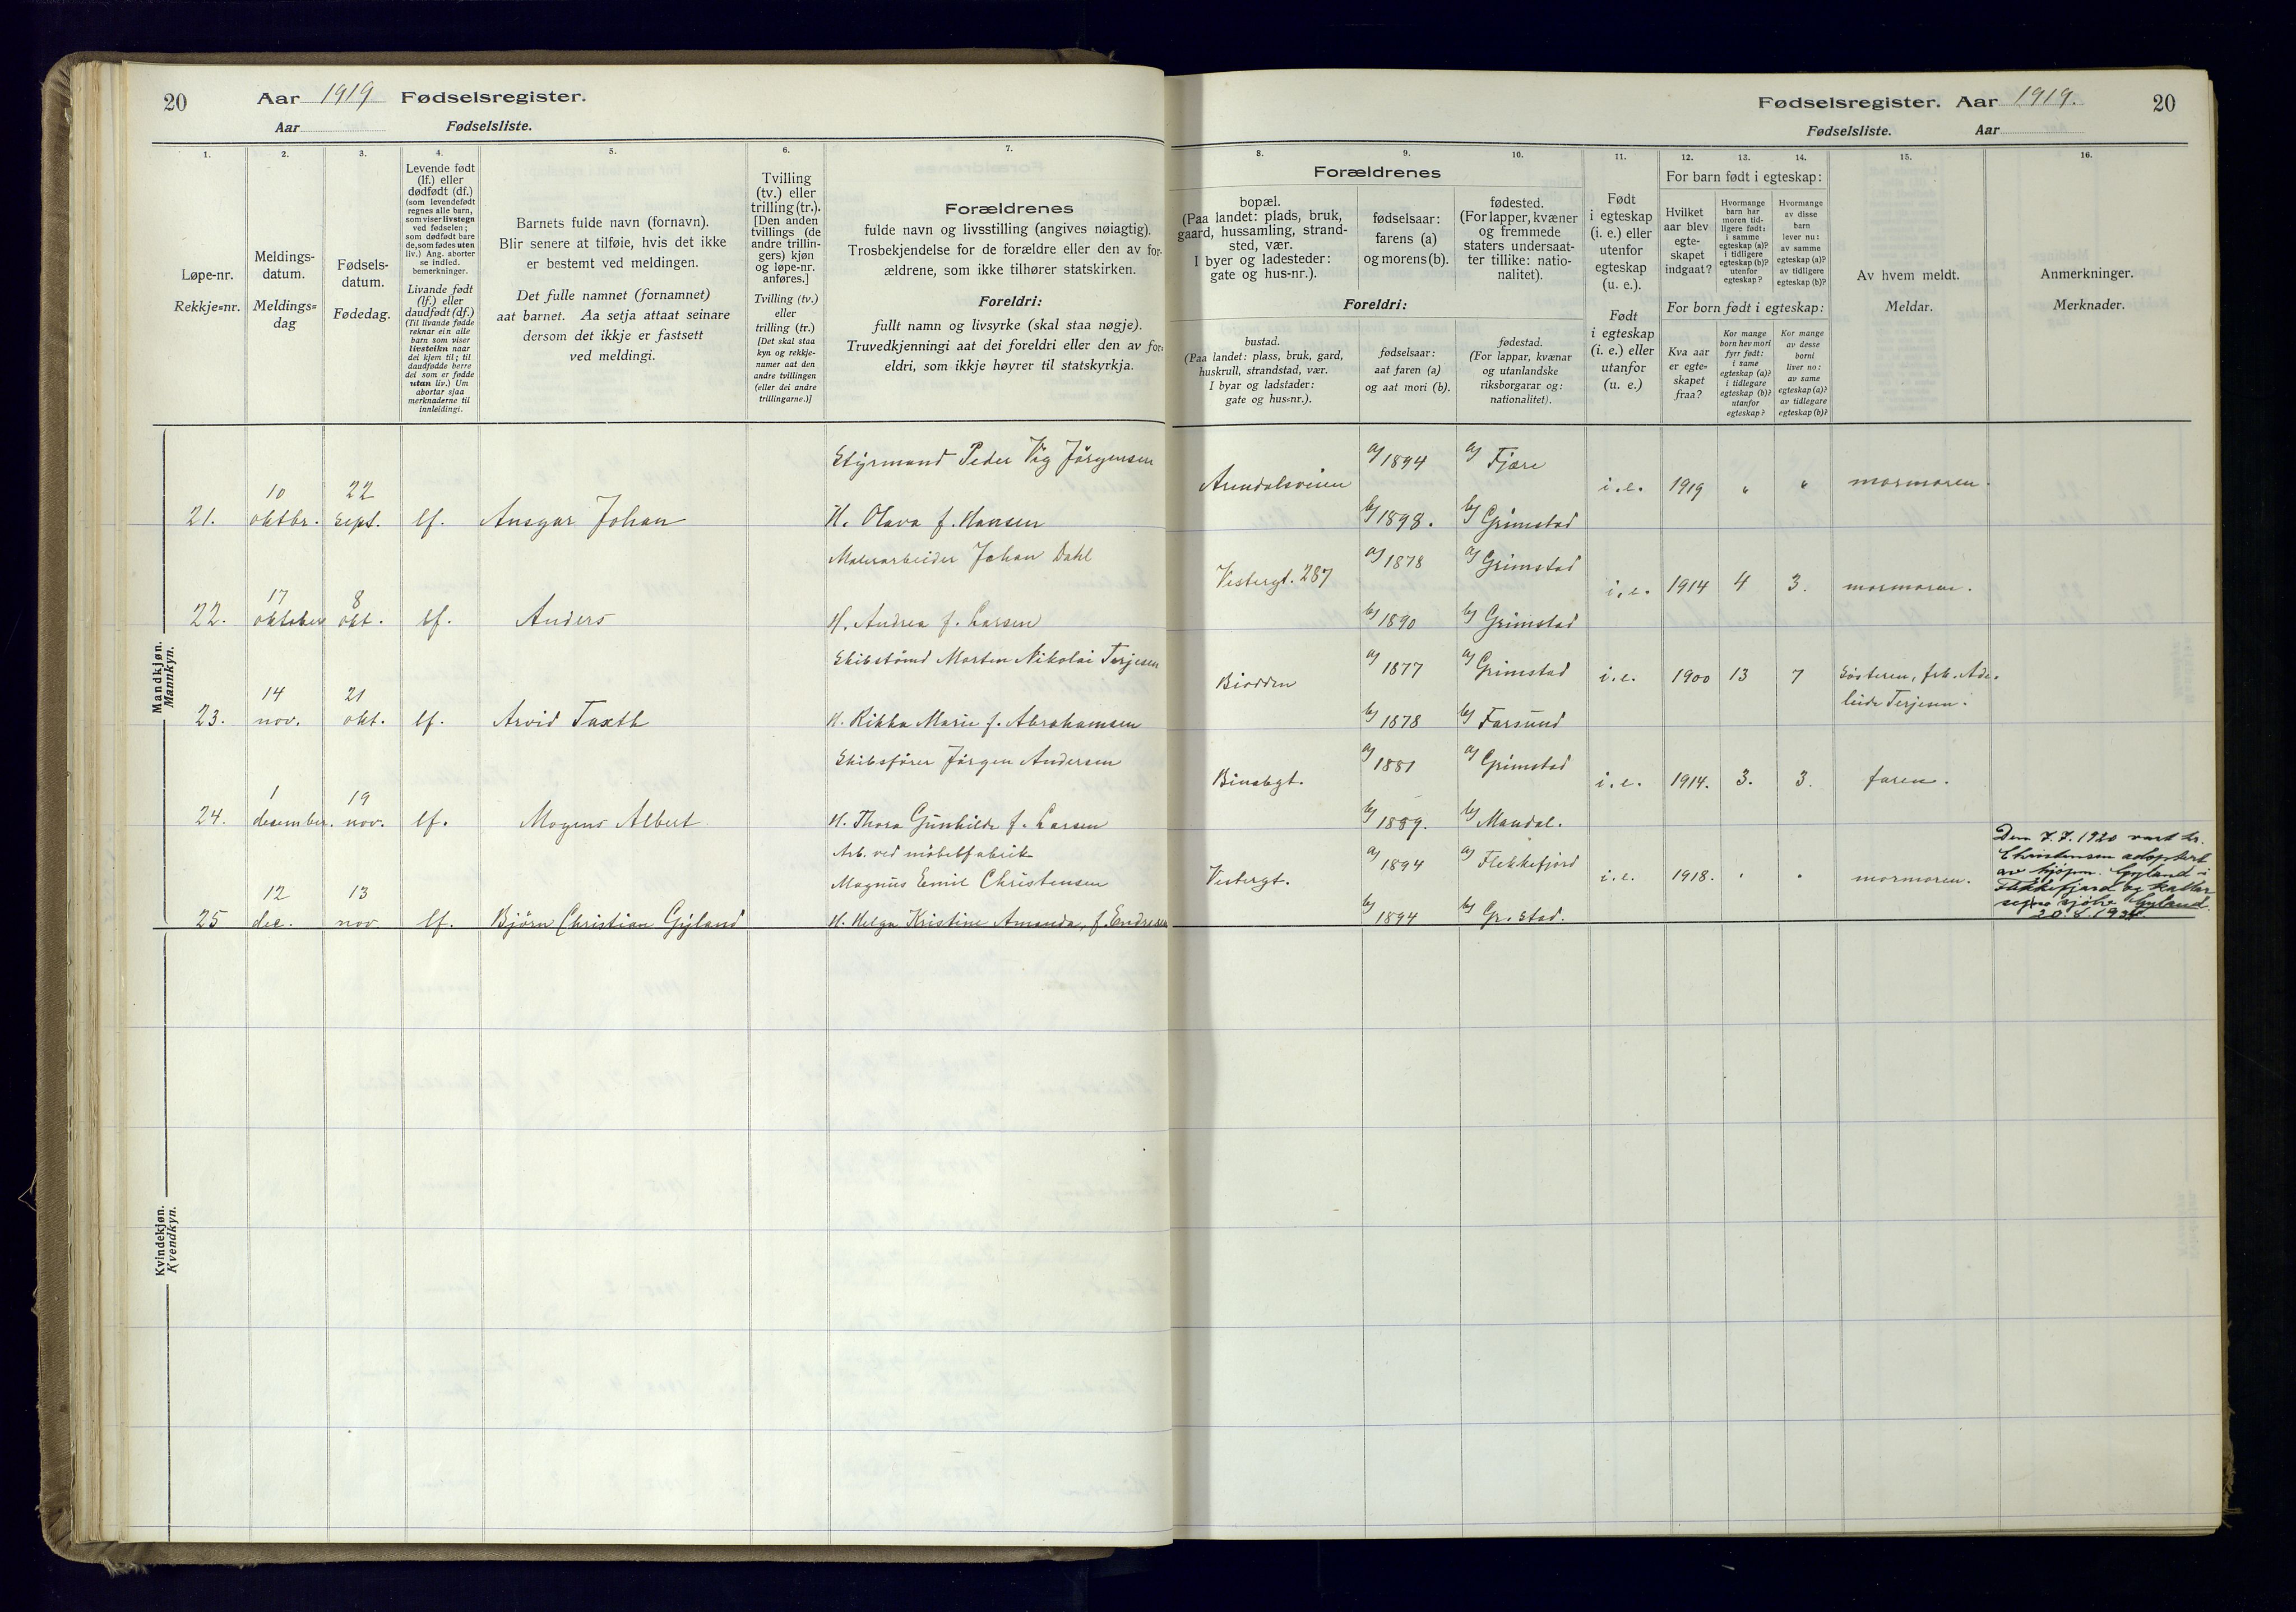 20
Aar 1919 Fødselsregister.
Aar
Fødselsliste.
Fødselsregister. Aar 1919.
20
Fødselsliste.
Aar
1.
2.
3.
4.
5.
6.
7.
8.
9.
10.
11.
12.
13.
14.
15.
16.
Løpe-nr.
Rekkje=nr.
Meldings-
datum.
Meldings=
dag
Fødsels-
datum.
Fødedag.
Levende født
(lf.) eller
dødfødt (df.)
(som levendefødt
regnes alle barn,
som viser livstegn
ved fødselen;
som dødfødt bare
de, som fødes uten
liv.) Ang. aborter
se indled.
bemerkninger.
Livande født
(lf.) eller
daudfødt (df.)
(Til livande fødde
reknar ein alle
barn som viser
livsteikn naar
dei kjem til; til
daudfødde berre
dei som er fødde
utan liv.) Um
abortar sjaa
merknaderne til
innleidingi.
Barnets fulde navn (fornavn).
Blir senere at tilføie, hvis det ikke
er bestemt ved meldingen.
Det fulle namnet (fornamnet)
aat barnet. Aa setja attaat seinare
dersom det ikkje er fastsett
ved meldingi.
Tvilling
(tv.) eller
trilling (tr.).
[Den anden
tvillings (de
andre trillin-
gers) kjøn
og løpe-nr.
anføres.]
Tvilling (tv.)
eller
trilling (tr.)
[Det skal staa
kyn og rekkje-
numer aat den
andre tvillingen
(eller dei andre
trillingarne.)]
Forældrenes
fulde navn og livsstilling (angives nøiagtig).
Trosbekjendelse for de forældre eller den av for-
ældrene, som ikke tilhører statskirken.
Foreldri:
fullt namn og livsyrke (skal staa nøgje).
Truvedkjenningi aat dei foreldri eller den av for=
eldri, som ikkje høyrer til statskyrkja.
Forældrenes
bopæl.
(Paa landet: plads, bruk,
gaard, hussamling, strand-
sted, vær.
I byer og ladesteder:
gate og hus-nr.).
fødselsaar:
farens (a)
og morens (b).
fødested.
(For lapper, kvæner
og fremmede
staters undersaat-
ter tillike: natio-
nalitet).
Foreldri:
bustad.
(Paa landet: plass, bruk, gard,
huskrull, strandstad, vær.
I byar og ladstader:
gate og hus=nr.).
fødselsaar:
aat faren (a)
og aat mori (b).
fødestad.
(For lappar, kvænar
og utanlandske
riksborgarar og:
nationalitet).
Født
i egteskap
(i. e.) eller
utenfor
egteskap
(u. e.).
Født
i egteskap
(i. e.) eller
utanfor
(u. e.)
For barn født i egteskap:
Hvilket
aar blev
egte-
skapet
indgaat?
Hvormange
barn har
moren tid-
ligere født:
i samme
egteskap (a)?
i tidligere
egteskap (b)?
utenfor
egteskap?
Hvormange
av disse
barn
lever nu:
av samme
egteskap (a)?
av tidligere
egteskap (b)?
For born født i egteskap:
Kva aar
er egte=
skapet
fraa?
Kor mange
born hev mori
fyrr født:
i same
egteskap (a)?
i tidlegare
egteskap (b)?
utanfor
egteskap?
Kor mange
av desse
borni
liver no:
av same
egteskap (a)?
av tidlegare
egteskap (b)?
Av hvem meldt.
Meldar.
Anmerkninger.
Merknader.
Mandkjøn.
Mannkyn.
21. 10 oktbr. 22 sept. lf. Ansgar Johan
Styrmand Peder Vig Jörgensen
H. Olava f. Hansen
Arendalsveien a) 1894 a) Fjære i.e. 1919 " " mormoren.
b) 1898. b) Grimstad
22. 17 oktober 8 okt. lf. Anders
Malerarbeider Johan Dahl
H. Andrea f. Larsen
Vestergt. 287 a) 1878 a) Grimstad i.e. 1914 4 3. mormoren.
b) 1890 b) Grimstad
23. 14 nov. 21 okt. lf. Arvid Taxth
Skibstömd Morten Nikolai Terjesen
H. Rikka Marie f. Abrahamsen
Biodden a) 1877 a) Grimstad i.e. 1900 13 7 Sösteren, frk. Ade-
leide Terjesen.
b) 1878 b) Farsund
24. 1 desember. 19 nov. lf. Mogens Albert
Skibsförer Jörgen Andersen
H. Thora Gunhilde f. Larsen
Binabgt. a) 1881 a) Grimstad i.e. 1914. 3. 3. faren.
b) 1889. b) Mandal.
25 12 dec. 13 nov. lf. Björn Christian Gyland
Arb. ved möbelfabrik
Magnus Emil Christensen
H. Helga Kristine Amanda, f. Endresen
Vestergt. a) 1894 a) Flekkefjord i.e. 1918. " " mormoren.
b) 1894 b) Gr.stad.
Den 7.7.1920 vart hr.
Christensen adoptert
av kjöpm. Gyland i
Flekkefjord og kallar
seg no sjölv Gyland.
Kvindekjøn.
Kvendkyn.